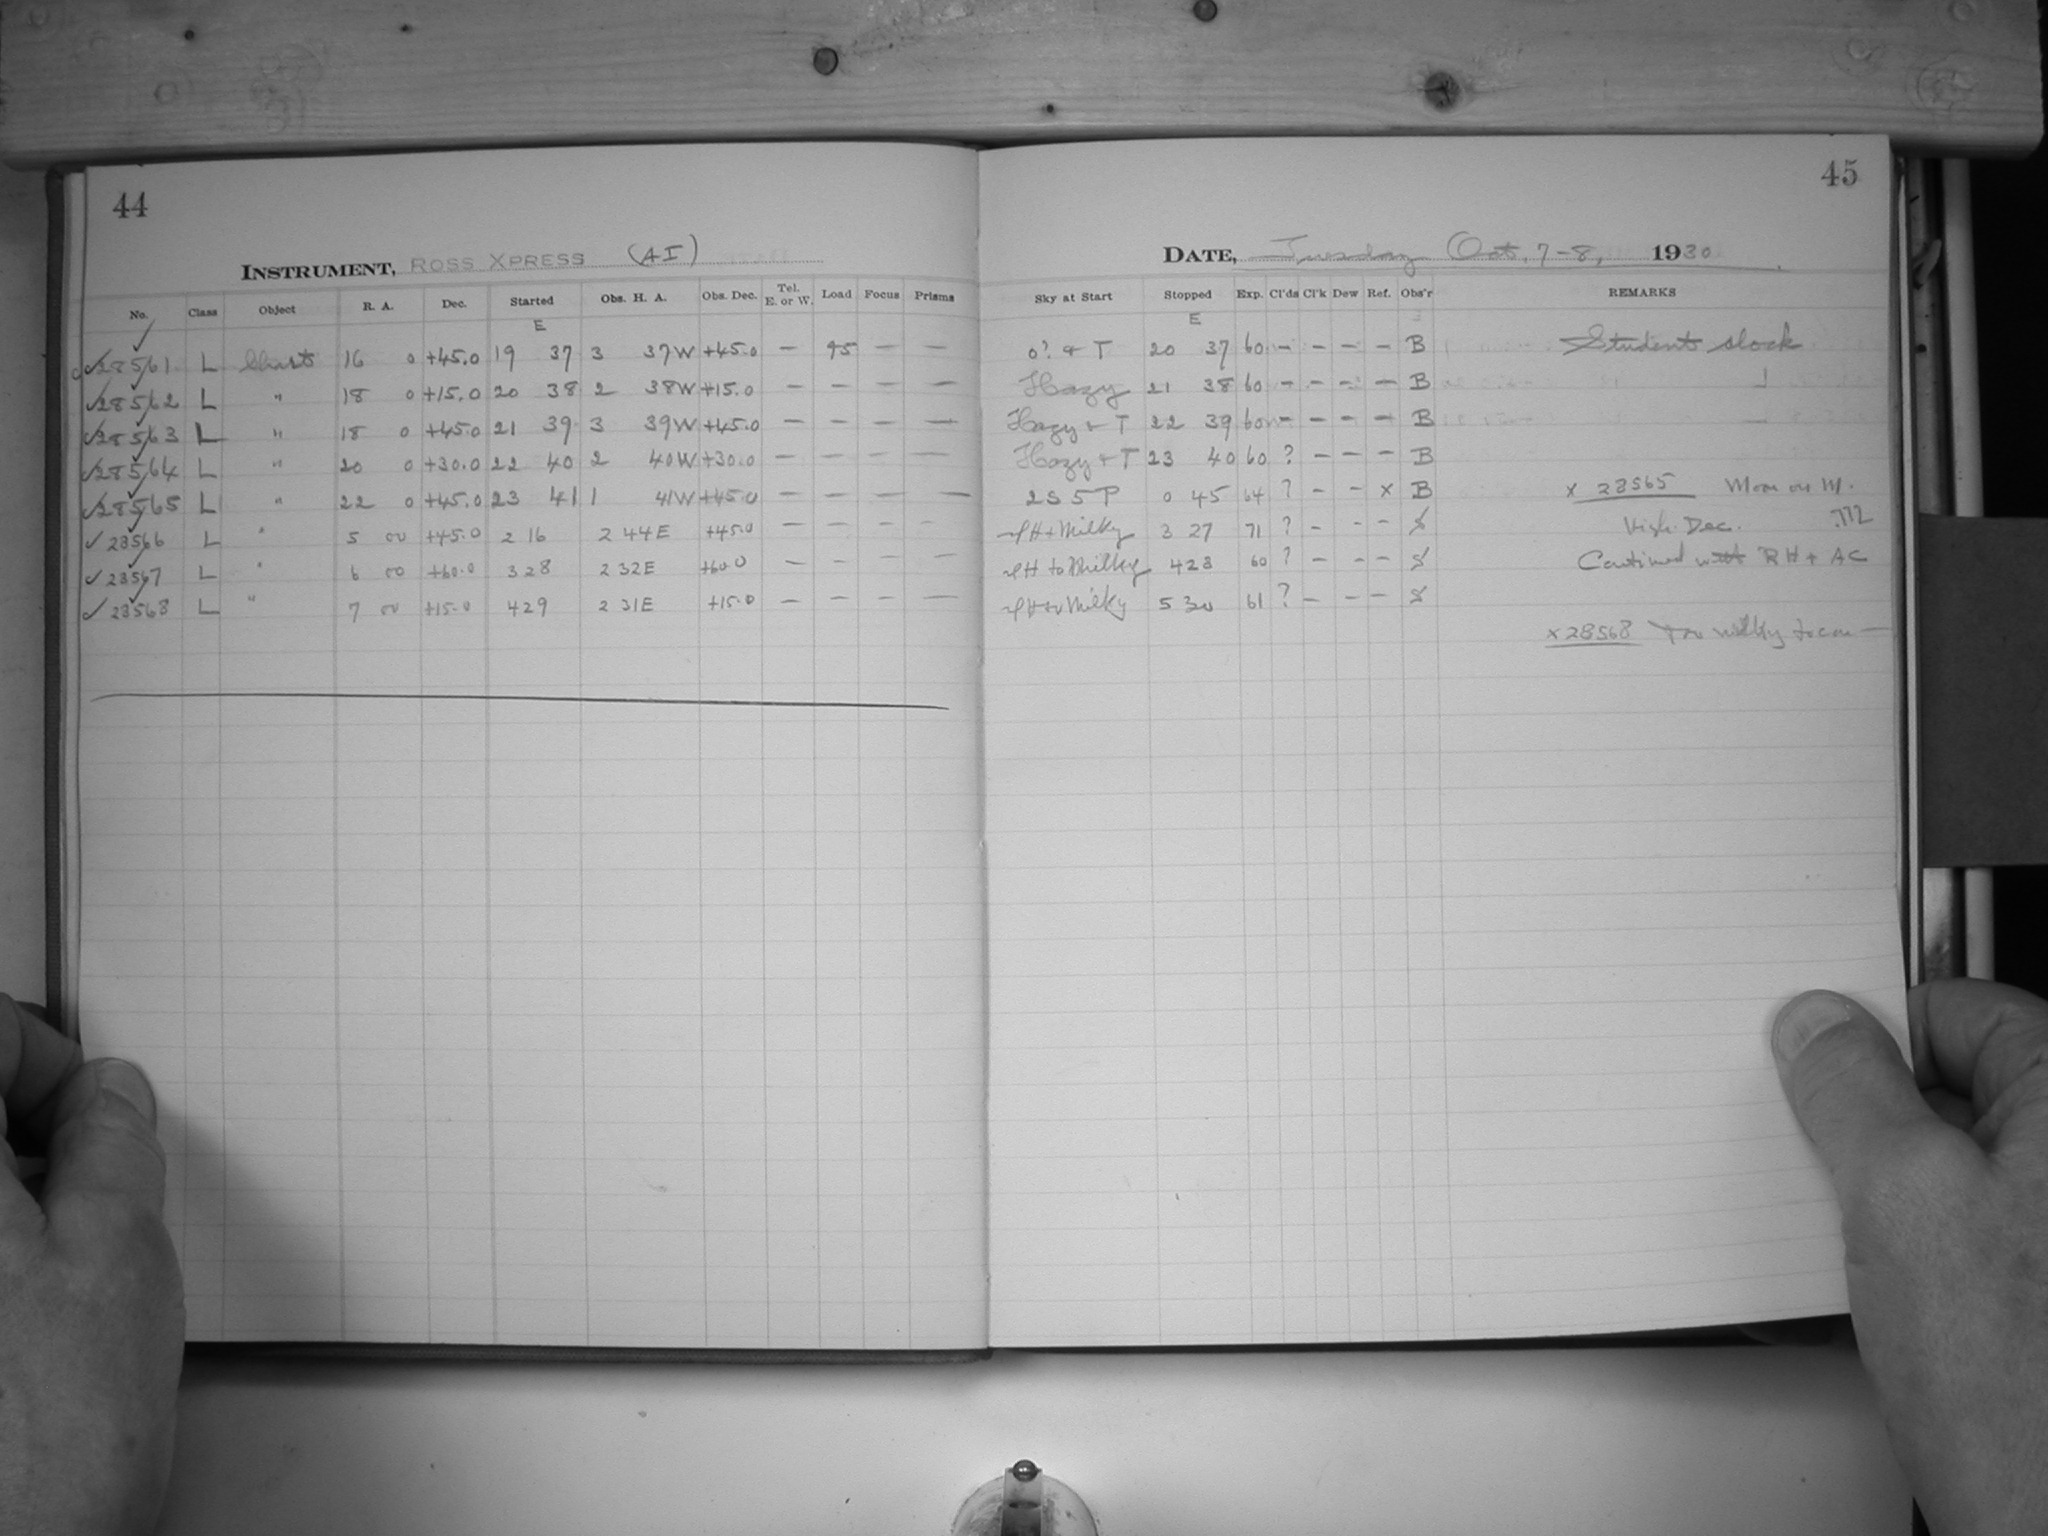 44
INSTRUMENT, ROSS XPRESS (AI)
No. Class Object R. A. Dec. Started Obs. H. A. Obs. Dec. Tel. E. or W. Load Focus Prisms
E
✓28561 L Chart 16 0 +45.0 19 37 3 37W +45.0 — 95 — —
✓28562 L " 18 0 +15.0 20 38 2 38W +15.0 — — — —
✓28563 L " 18 0 +45.0 21 39 3 39W +45.0 — — — —
✓28564 L " 20 0 +30.0 22 40 2 40W +30.0 — — — —
✓28565 L " 22 0 +45.0 23 41 1 41W +45.0 — — — —
✓28566 L " 5 00 +45.0 2 16 2 44E +45.0 — — — —
✓28567 L " 6 00 +60.0 3 28 2 32E +60.0 — — — —
✓28568 L " 7 00 +15.0 4 29 2 31E +15.0 — — — —
45
DATE, Tuesday Oct. 7-8, 1930
Sky at Start Stopped Exp. Cl'ds Cl'k Dew Ref. Obs'r REMARKS
E
0? & T 20 37 60 — — — — B Students clock
Hazy 21 38 60 — — — — B
Hazy + T 22 39 60 — — — — B
Hazy + T 23 40 60 ? — — — B
2S 5P 0 45 64 ? — — x B x 28565 Moon on M.
H + Milky 3 27 71 ? — — — High Dec.
H to Milky 4 28 60 ? — — — Continued with RH + AC
Milky 5 30 61 ? — — —
x 28568 Too milky to con—